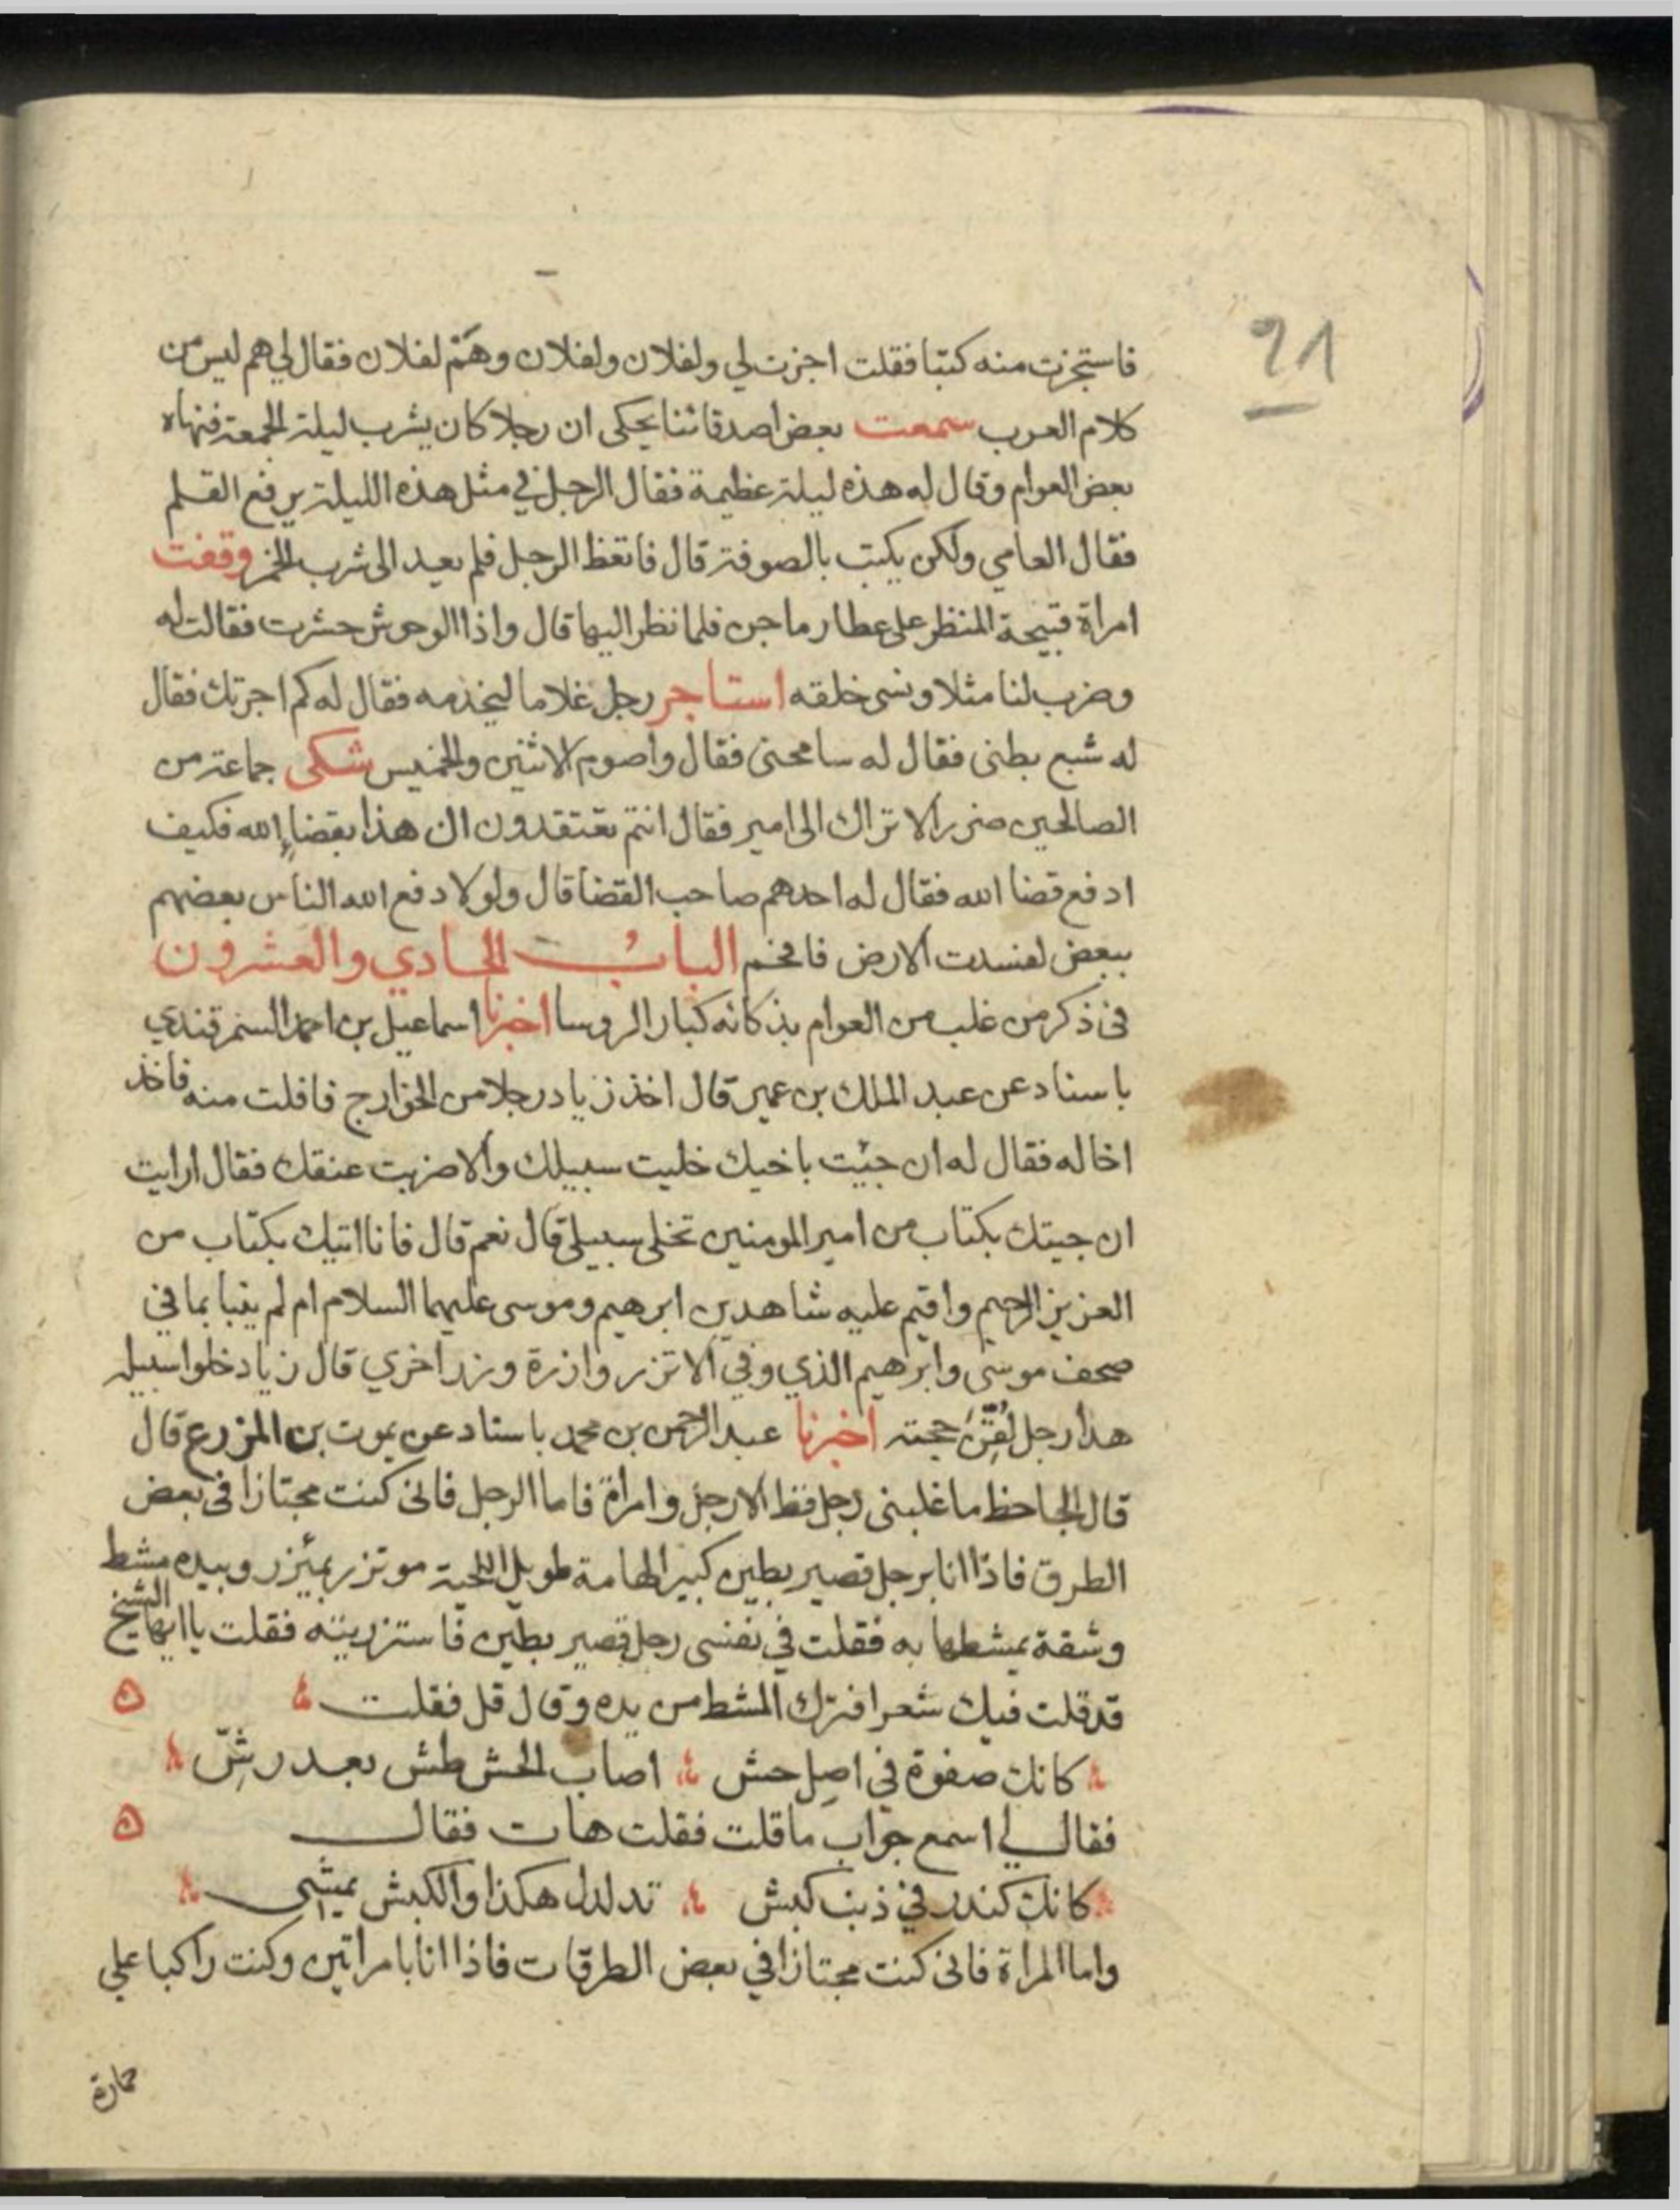 91
فاستجزت منه كتبا فقلت اجزت لي ولفلان ولفلان وهَمْ لفلان فقال لي هم ليس من
كلام العرب سمعت بعض اصدقائنا يحكى ان رجلا كان يشرب ليلة الجمعة فنهاه
بعض العوام وقال له هذه ليلة عظيمة فقال الرجل في مثل هذه الليلة يرفع القلم
فقال العامي ولكن يكتب بالصوفة قال فاتعظ الرجل فلم يعيد الى شرب الخمر وقفت
امراة قبيحة المنظر على عطار ماجن فلما نظر اليها قال واذا الوحوش حشرت فقالت له
وضرب لنا مثلا ونسى خلقه استاجر رجل غلاما ليخذمه فقال له كم اجرتك فقال
له شبع بطنى فقال له سامحنى فقال واصوم الاثنين والخميس شكى جماعة من
الصالحين ضرر الاتراك الى امير فقال انتم تعتقدون ان هذا بقضاء الله فكيف
ادفع قضا الله فقال له احدهم صاحب القضا قال ولولا دفع الله الناس بعضهم
ببعض لفسدت الارض فافخم البابُ الحادي والعشرون
فى ذكر من غلب من العوام بذكائه كبار الروسا اخبرنا اسماعيل بن احمد السمرقندي
باسناد عن عبد الملك بن عمير قال اخذ زياد رجلا من الخوارج فافلت منه فاخذ
اخا له فقال له ان جئت باخيك خليت سبيلك والا ضربت عنقك فقال ارايت
ان جيتك بكتاب من امير المومنين تخلى سبيلى قال نعم قال فانا اتيك بكتاب من
العزيز الرحيم واقيم عليه شاهدين ابرهيم وموسى عليهما السلام ام لم ينبا بما في
صحف موسى وابرهيم الذي وفي الا تزر وازرة وزر اخري قال زياد خلوا سبيله
هذا رجل لُقِّنَ حجته اخبرنا عبد الرحمن بن محمد باسناد عن يموت بن المزرع قال
قال الجاحظ ما غلبنى رجل قط الا رجل وامراة فاما الرجل فانى كنت مجتازا فى بعض
الطرق فاذا انا برجل قصير بطين كبير الهامة طويل اللحية موتزر بمئزر وبيده مشط
وشقة يمشطها به فقلت في نفسى رجل قصير بطين فاستزريته فقلت يا ايها الشيخ
قد قلت فيك شعرا فترك المشط من يده وقال قل فقلت
كانك صفوة في اصل حش اصاب الحش طش بعد رشّ
فقال لي اسمع جواب ما قلت فقلت هات فقال
كانك كندر في ذنب كبش تدلدل هكذا والكبش يمشى
واما المراة فانى كنت مجتازا في بعض الطرقات فاذا انا بامراتين وكنت راكبا على
حمارة